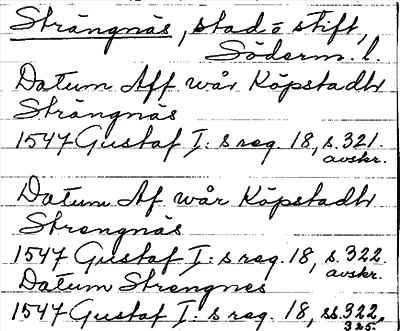 Strängnäs, stad o stift,
Söderm. l.
Datum Aff wår Köpstadh
Strängnäs
1547 Gustaf I:s reg. 18, s. 321.
avskr.
Datum Af wår Köpstadh
Strengnäs
1547 Gustaf I:s reg. 18, s. 322
avskr.
Datum Strengnes
1547 Gustaf I:s reg. 18, ss. 322,
325.